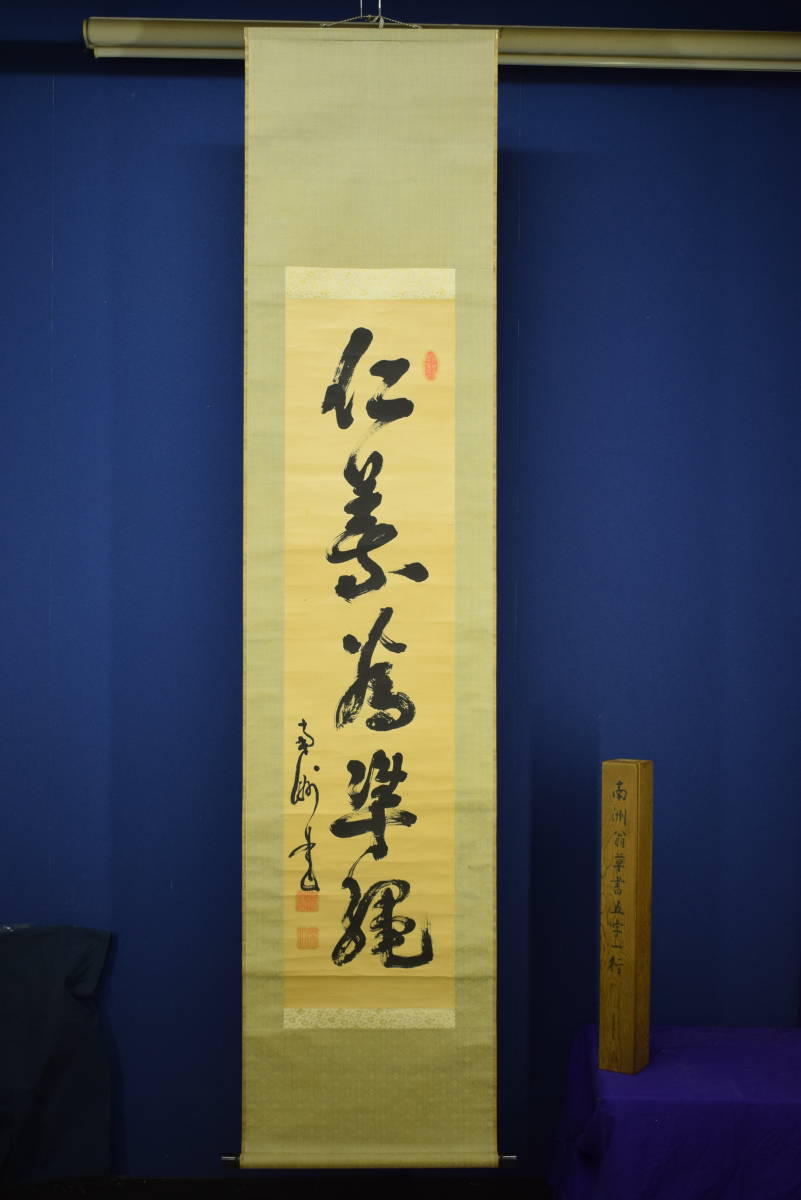 仁義為準縄
南洲書
南洲翁草書五字一行